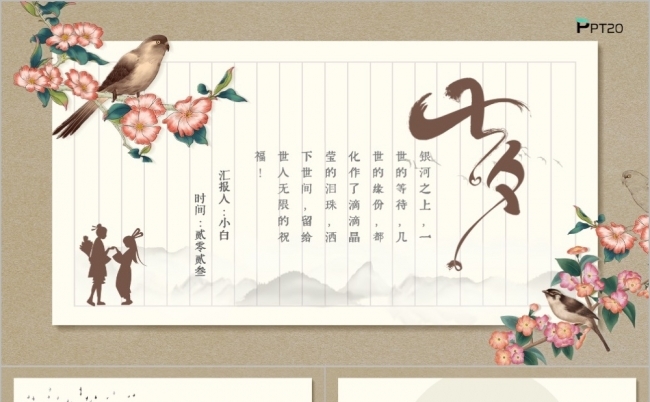 PPT20
七夕
银河之上，一
世的等待，几
世的缘份，都
化作了滴滴晶
莹的泪珠，洒
下世间，留给
世人无限的祝
福！
汇报人：小白
时间：贰零贰叁